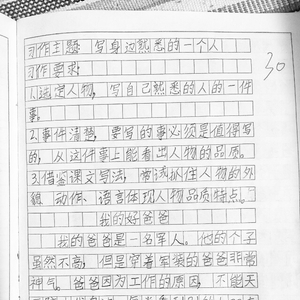 习作主题: 写身边熟悉的一个人
习作要求:
1.选定人物, 写自己熟悉的人的一件
事.
2.事件清楚, 要写的事必须是值得写
的, 从这件事上能看出人物的品质。
3.借鉴课文写法, 抓住人物的外
貌、动作、语言体现人物品质特点。
我的好爸爸
我的爸爸是一名军人。他的个子
虽然不高, 但是穿着军装的爸爸非常
神气。爸爸因为工作的原因, 不能天
30